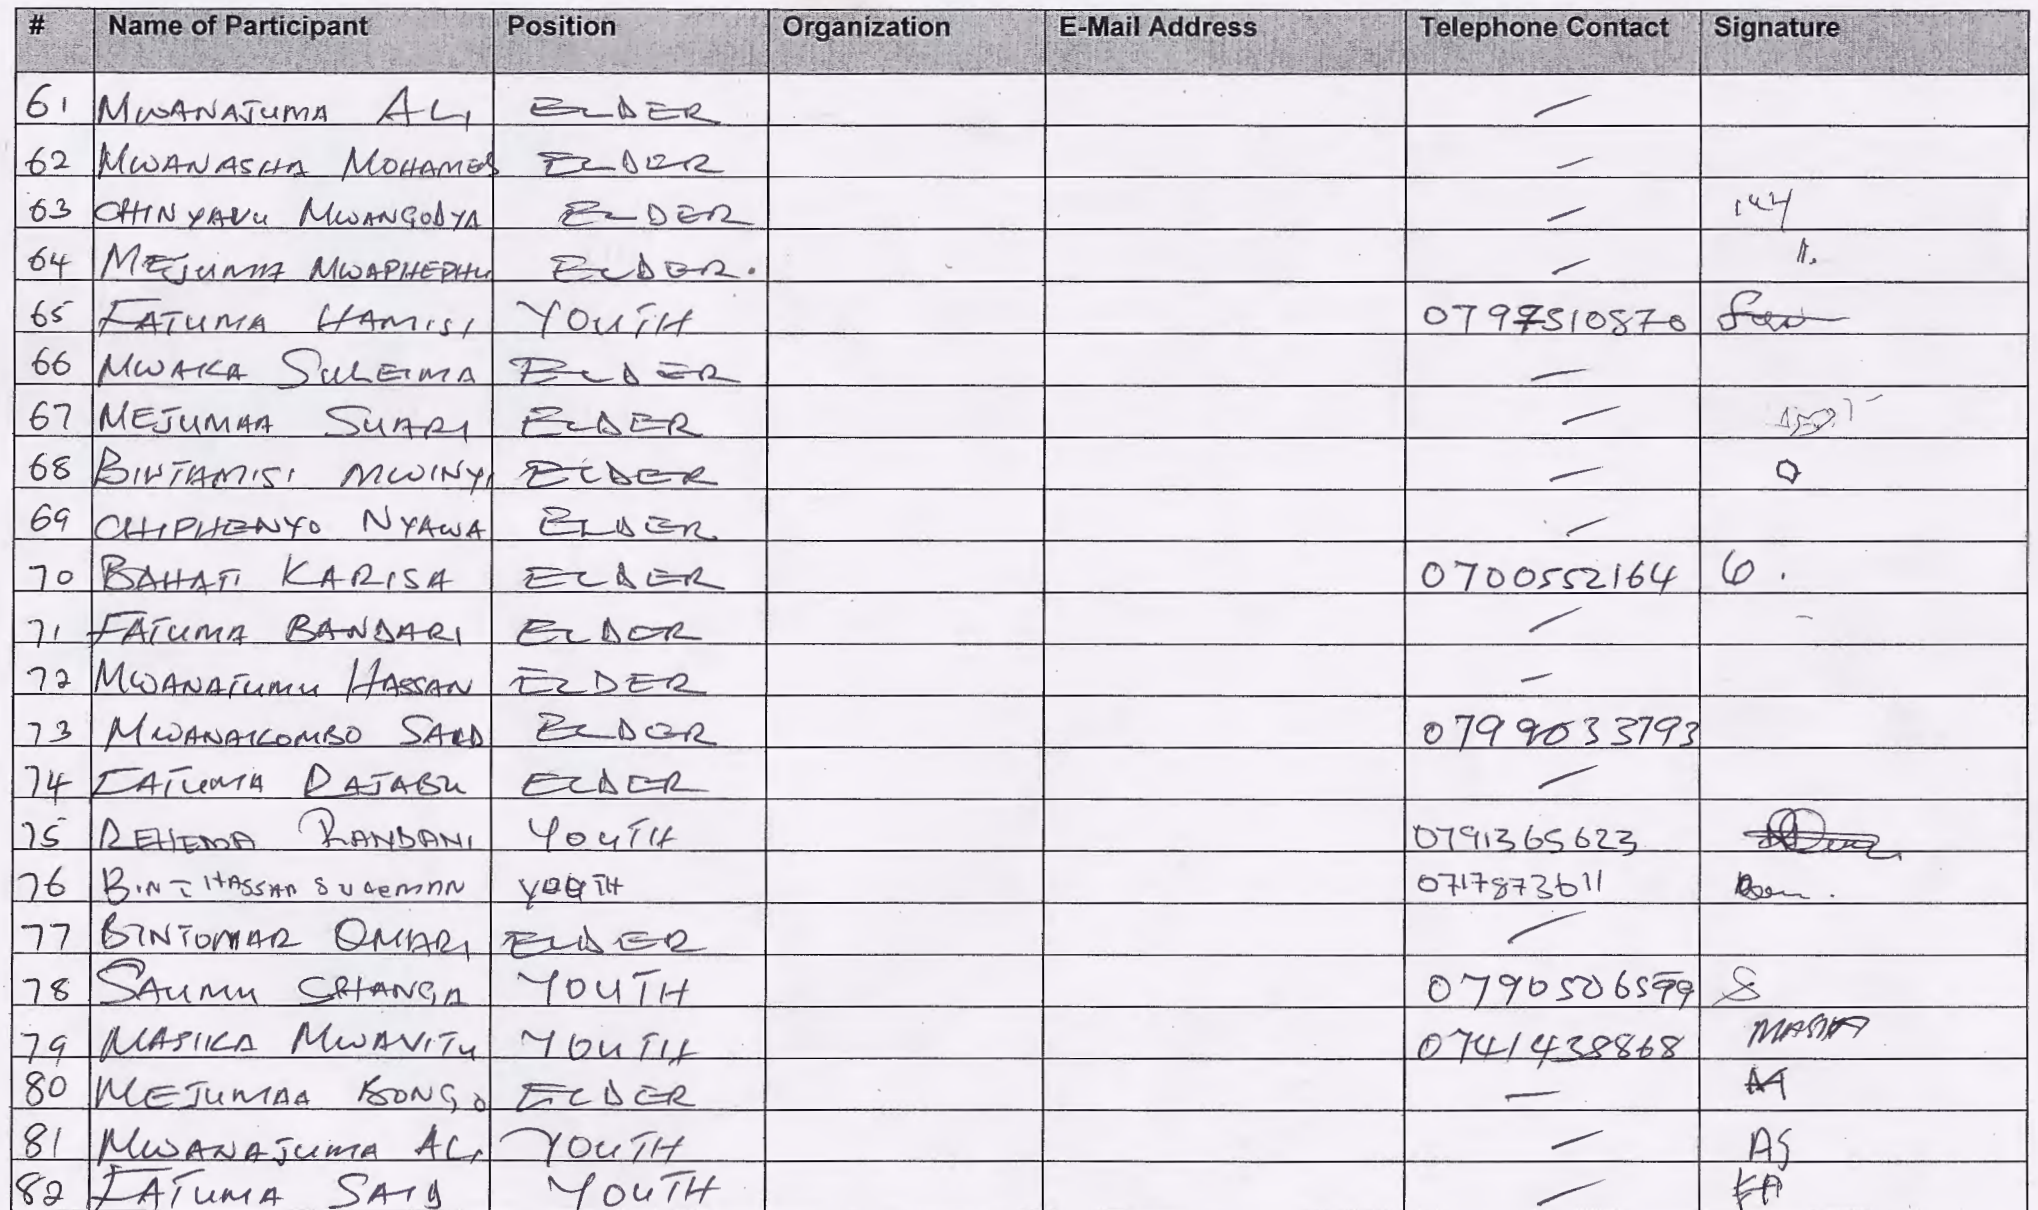 # Name of Participant Position Organization E-Mail Address Telephone Contact Signature
61 MWANAJUMA ALI ELDER —
62 MWANASHA MOHAMED ELDER —
63 CHINYAVU MWANGODYA ELDER —
64 MEJUMAA MWAPHEPHU ELDER. —
65 FATUMA HAMISI YOUTH 0797510870
66 MWAKA SULEIMA ELDER —
67 MEJUMAA SUARI ELDER —
68 BINTAMISI MWINYI ELDER —
69 CHIPHENYO NYAWA ELDER —
70 BAHATI KARISA ELDER 0700552164
71 FATUMA BANDARI ELDER —
72 MWANATUMU HASSAN ELDER —
73 MWANAKOMBO SAID ELDER 0799033793
74 FATUMA RAJABU ELDER —
75 REHEMA RANDANI YOUTH 0791365623
76 BINT HASSAN SULEMAN YOUTH 0717873611
77 BINTOMAR OMARI ELDER —
78 SAUMU CHANGA YOUTH 0790506599 S
79 MASIKA MWAVITU YOUTH 0741438868 MASIKA
80 MEJUMAA BONGO ELDER —
81 MWANAJUMA ALI YOUTH — AJ
82 FATUMA SAID YOUTH — FA